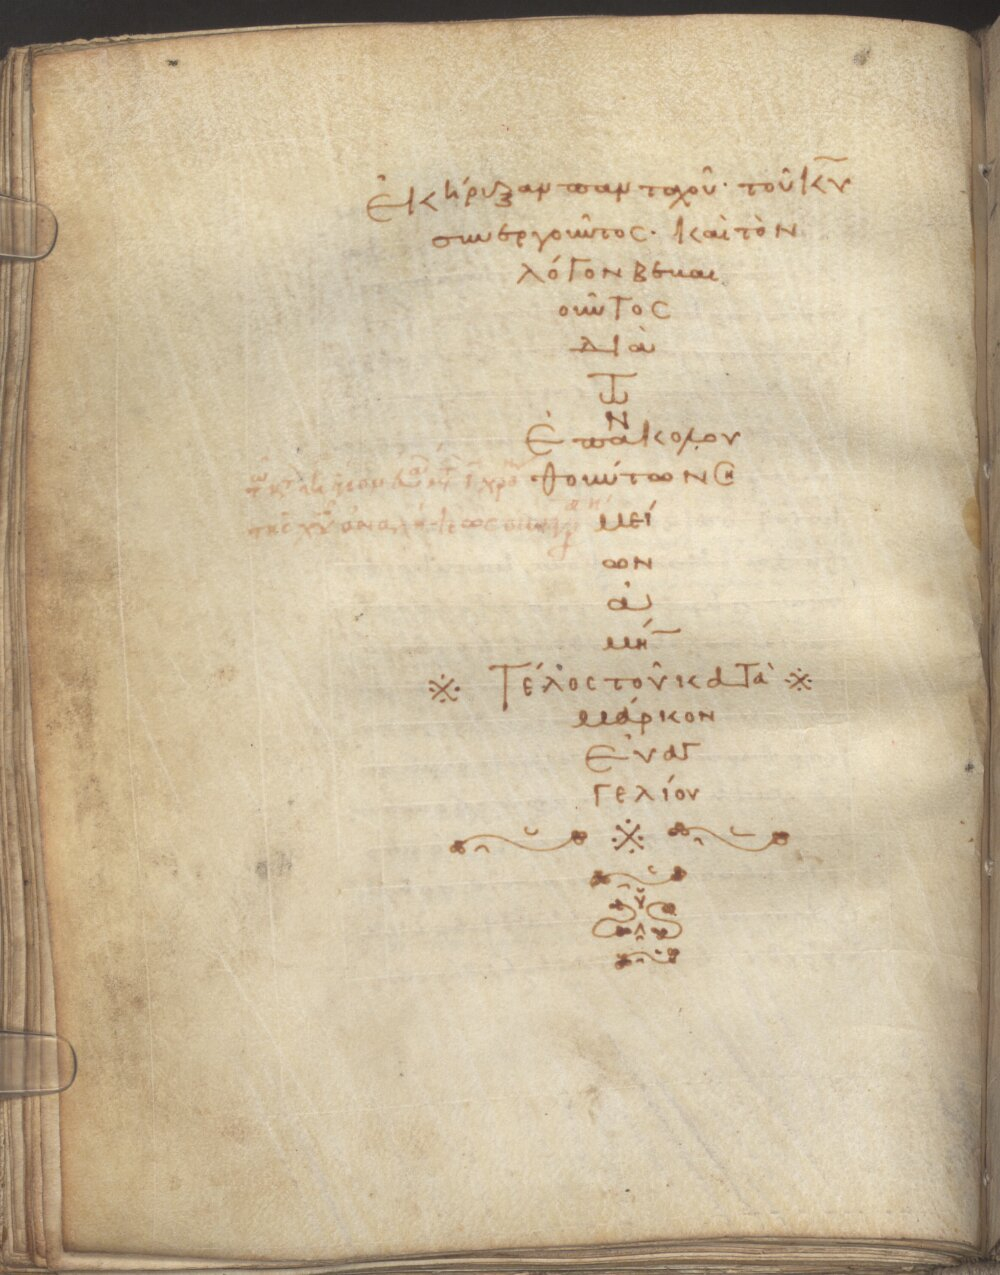 ἐκήρυξαν πανταχοῦ· τοῦ κ̅υ̅
συνεργοῦντος· καὶ τὸν
λόγον βεβαι
οῦντος
διὰ
τῶ
ν
ἐπακολου
θούντων ση
μεί
ων
ἀ
μήν
Τέλος τοῦ κατὰ
μάρκον
εὐαγ
γελίου